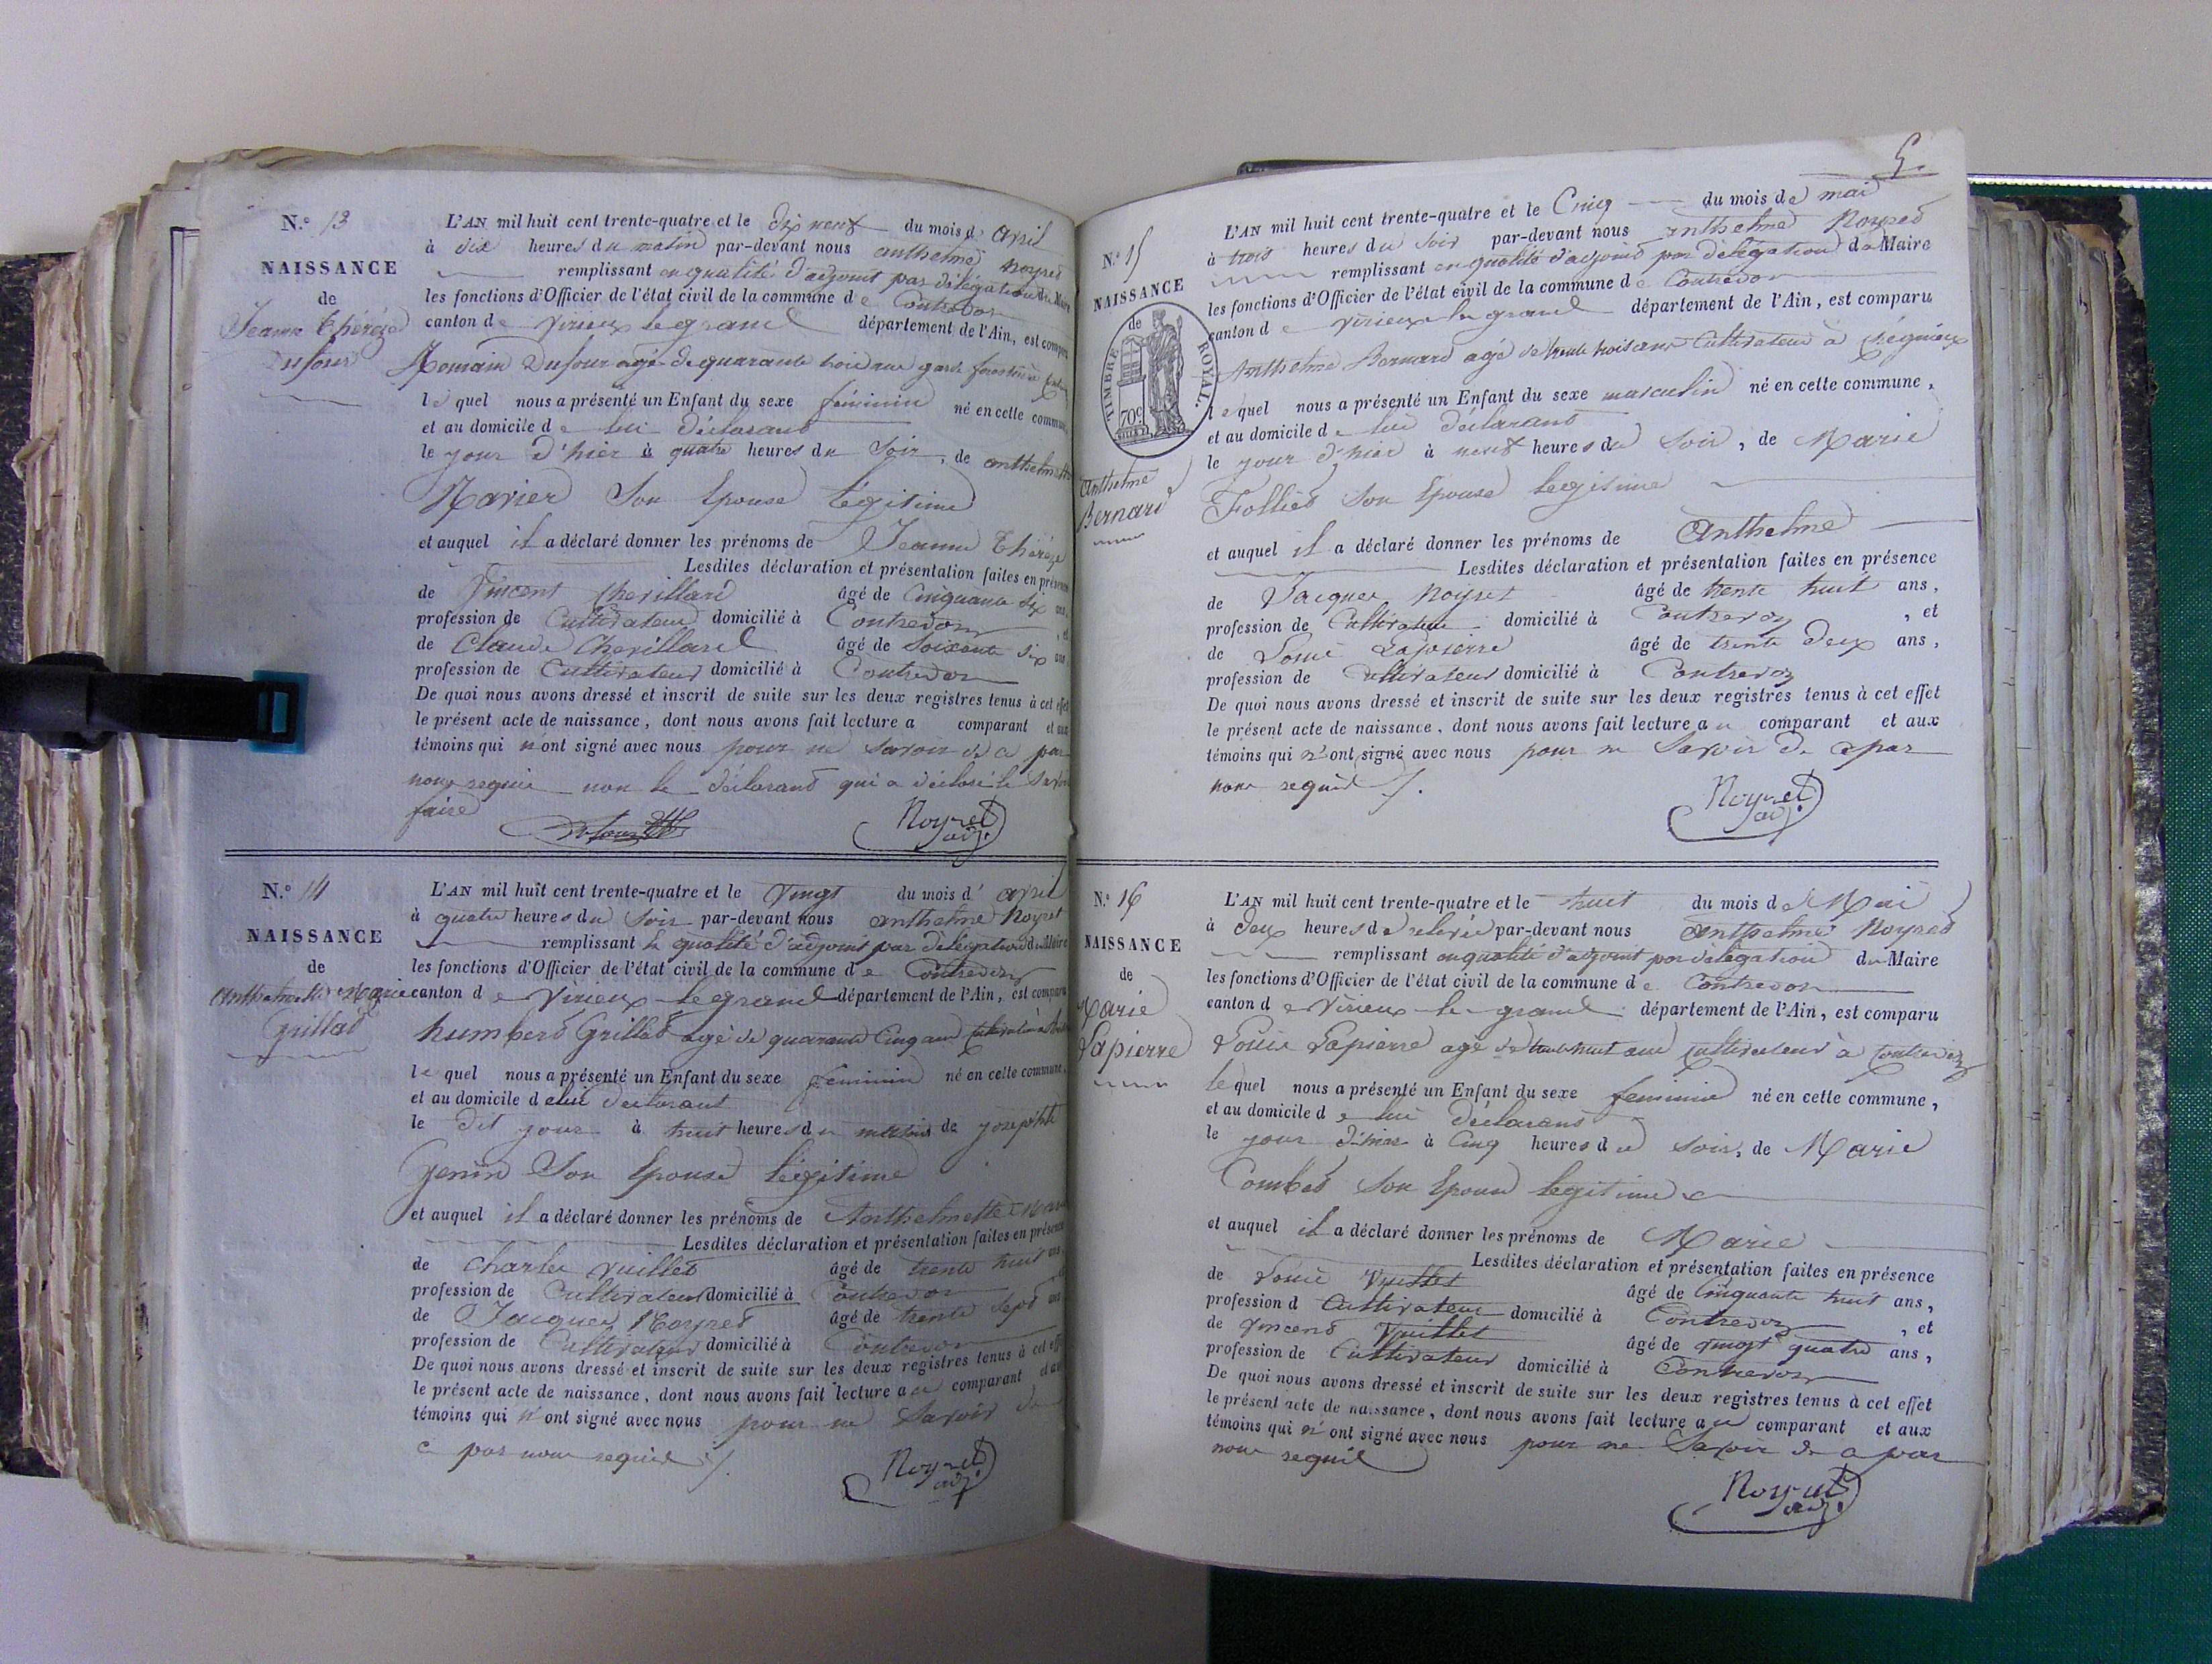 N.° 13
NAISSANCE
de
Jeanne Thérèze
Dufour
L'AN mil huit cent trente-quatre et le dix neuf du mois d' avril
à dix heures du matin par-devant nous anthelme Noyret
remplissant en qualité d'adjoint par délégation du Maire
les fonctions d'Officier de l'état civil de la commune de Contrevoz
canton de virieux le grand département de l'Ain, est comparu
Romain Dufour agé de quarante trois ans garde forestier à
lequel nous a présenté un Enfant du sexe féminin né en cette commune
et au domicile de lui déclarant
le jour d'hier à quatre heures du soir, de anthelmette
Navier son Epouse légitime
et auquel il a déclaré donner les prénoms de Jeanne Thérèze
Lesdites déclaration et présentation faites en présence
de Vincent Chevillard âgé de Cinquante six ans,
profession de Cultivateur domicilié à Contrevoz, et
de Claude Chevillard âgé de Soixante six ans
profession de Cultivateur domicilié à Contrevoz
De quoi nous avons dressé et inscrit de suite sur les deux registres tenus à cet effet
le présent acte de naissance, dont nous avons fait lecture a comparant et aux
témoins qui n'ont signé avec nous pour ne savoir de ce par
nous requis non le déclarant qui a déclaré le savoir
faire
Dufour Noyret
adj.
N.° 14
NAISSANCE
de
Anthelmette Marie
Grillet
L'AN mil huit cent trente-quatre et le vingt du mois d' avril
à quatre heures du soir par-devant nous anthelme Noyret
remplissant en qualité d'adjoint par délégation du Maire
les fonctions d'Officier de l'état civil de la commune de Contrevoz
canton de Virieux le grand département de l'Ain, est comparu
humbert Grillet agé de quarante Cinq ans Cultivateur à
lequel nous a présenté un Enfant du sexe feminin né en cette commune,
et au domicile de lui declarant
le dit jour à huit heures du matin de josephte
Genin son Epouse légitime
et auquel il a déclaré donner les prénoms de Anthelmette Marie
Lesdites déclaration et présentation faites en présence
de Charles Vuillet âgé de trente huit ans,
profession de Cultivateur domicilié à Contrevoz
de Jacques Noyret âgé de trente sept ans
profession de Cultivateur domicilié à Contrevoz
De quoi nous avons dressé et inscrit de suite sur les deux registres tenus à cet effet
le présent acte de naissance, dont nous avons fait lecture au comparant et aux
témoins qui n'ont signé avec nous pour ne savoir de
ce par nous requis ./.
Noyret
adj.
5.
N.° 15
NAISSANCE
de
TIMBRE ROYAL.
70c
Anthelme
Bernard
L'AN mil huit cent trente-quatre et le Cinq du mois de mai
à trois heures du soir par-devant nous anthelme Noyret
remplissant en qualité d'adjoint par délégation du Maire
les fonctions d'Officier de l'état civil de la commune de Contrevoz
canton de virieux le grand département de l'Ain, est comparu
Anthelme Bernard agé de trente trois ans Cultivateur à
lequel nous a présenté un Enfant du sexe masculin né en cette commune,
et au domicile de lui déclarant
le jour d'hier à neuf heures du soir, de Marie
Folliet son Epouse legitime
et auquel il a déclaré donner les prénoms de Anthelme
Lesdites déclaration et présentation faites en présence
de Jacques Noyret âgé de trente huit ans,
profession de Cultivateur domicilié à Contrevoz, et
de Louis Lapierre âgé de trente deux ans,
profession de Cultivateur domicilié à Contrevoz
De quoi nous avons dressé et inscrit de suite sur les deux registres tenus à cet effet
le présent acte de naissance, dont nous avons fait lecture au comparant et aux
témoins qui n'ont signé avec nous pour ne savoir de ce par
nous requis ./.
Noyret
adj.
N.° 16
NAISSANCE
de
Marie
Lapierre
L'AN mil huit cent trente-quatre et le huit du mois de Mai
à deux heures de relevé par-devant nous Anthelme Noyret
remplissant en qualité d'adjoint par délégation du Maire
les fonctions d'Officier de l'état civil de la commune de Contrevoz
canton de Virieux le grand département de l'Ain, est comparu
Louis Lapierre agé de trente huit ans cultivateur à Contrevoz
lequel nous a présenté un Enfant du sexe feminin né en cette commune,
et au domicile de lui déclarant
le jour d'hier à Cinq heures du soir, de Marie
Combet son Epouse legitime
et auquel il a déclaré donner les prénoms de Marie
Lesdites déclaration et présentation faites en présence
de Louis Vuillet âgé de Cinquante huit ans,
profession d Cultivateur domicilié à Contrevoz, et
de Vincent Vuillet âgé de vingt quatre ans,
profession de Cultivateur domicilié à Contrevoz
De quoi nous avons dressé et inscrit de suite sur les deux registres tenus à cet effet
le présent acte de naissance, dont nous avons fait lecture au comparant et aux
témoins qui n'ont signé avec nous pour ne savoir de ce par
nous requis
Noyret
adj.